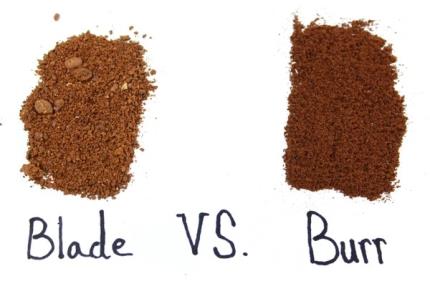 Blade VS. Burr